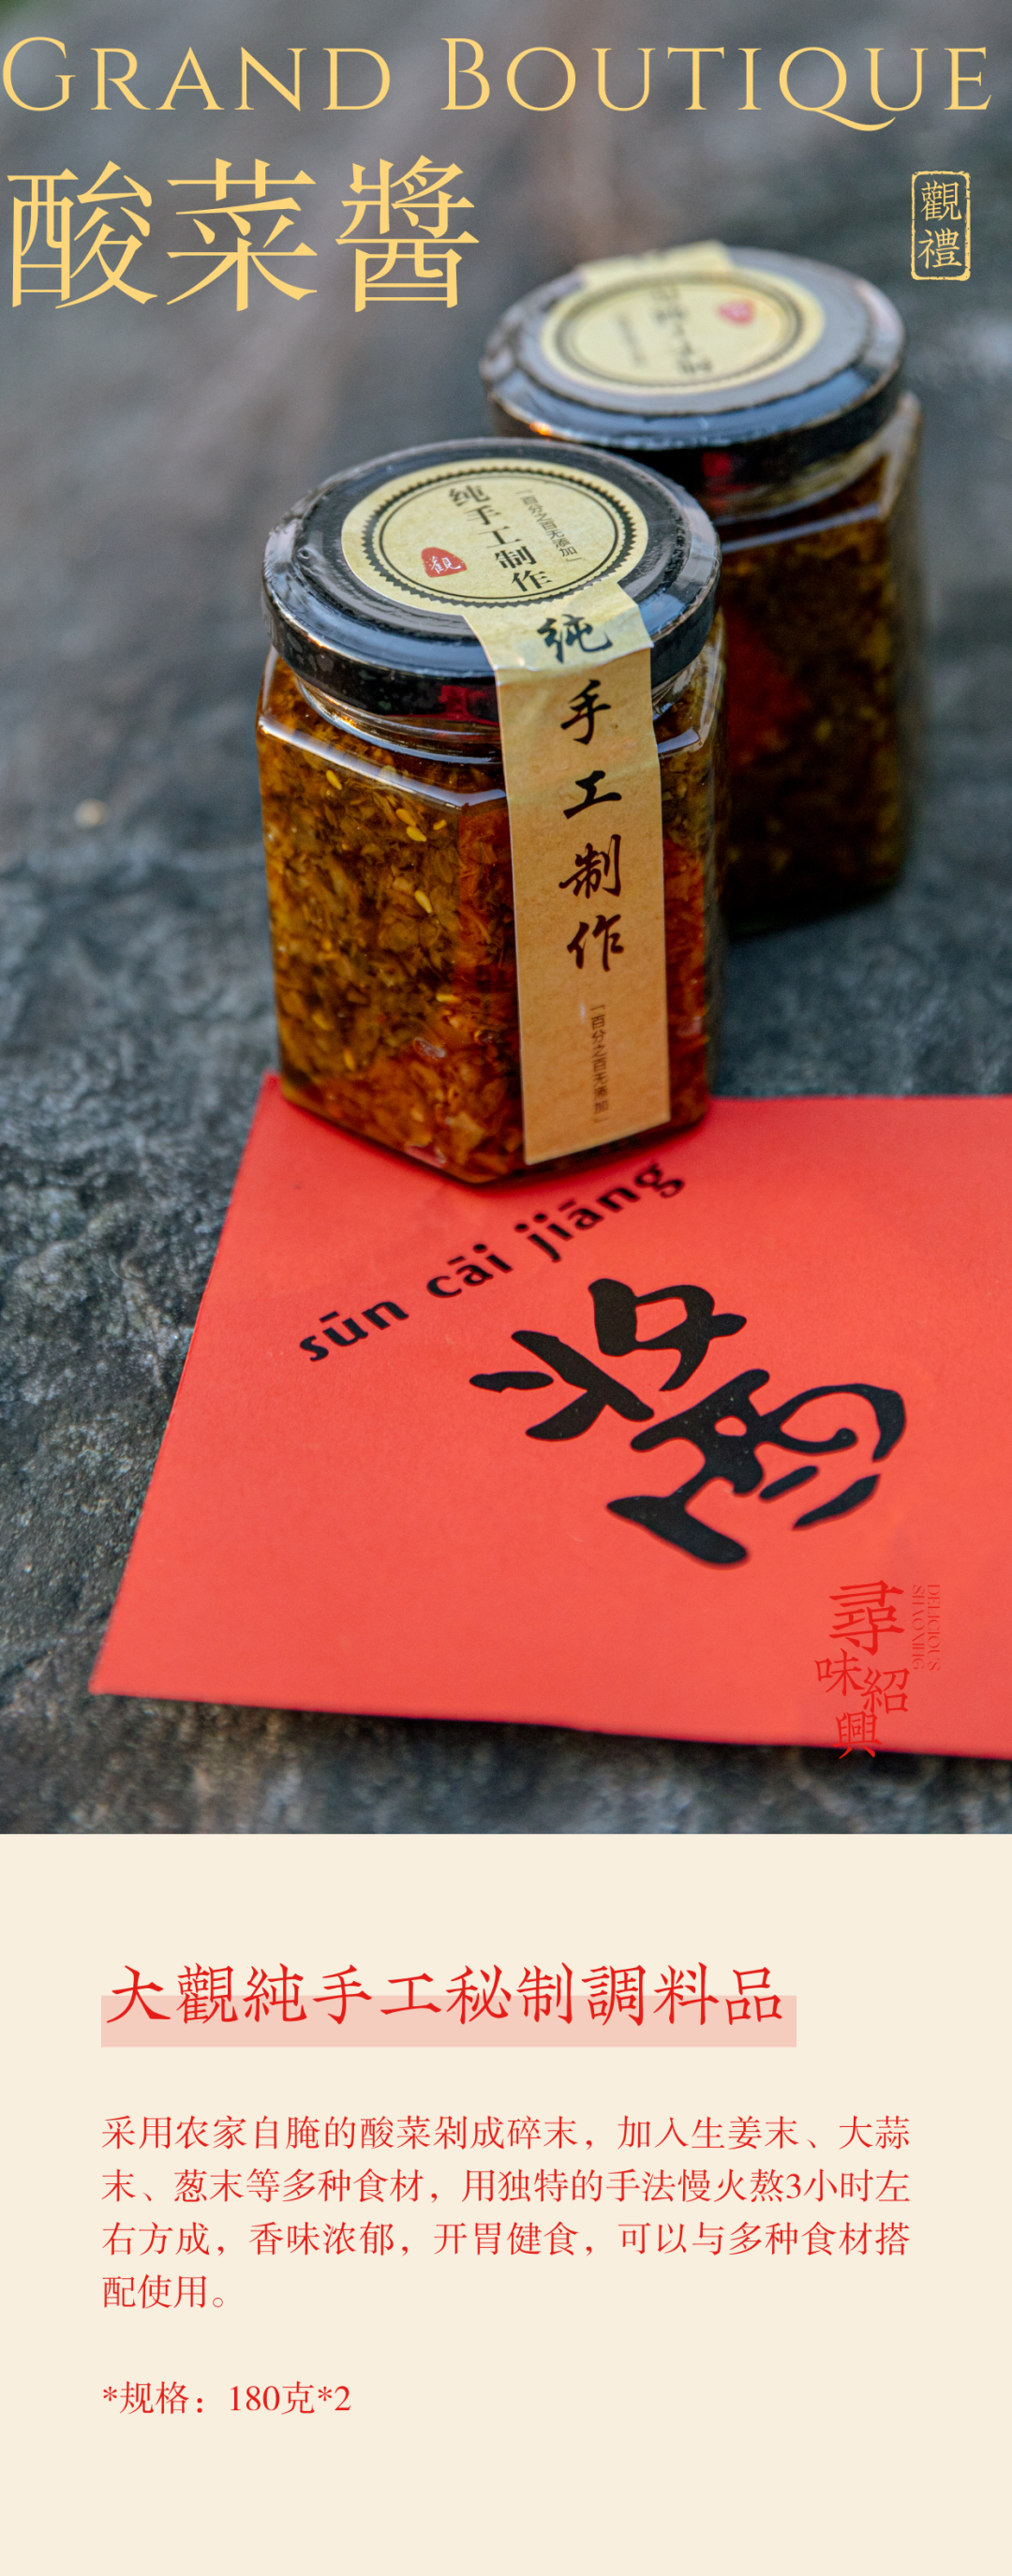 GRAND BOUTIQUE
酸菜醬
觀禮
纯手工制作
「百分之百无添加」
觀
纯手工制作
「百分之百无添加」
sūn cāi jiāng
酱
尋味紹興
DELICIOUS
SHAOXING
大觀純手工秘制調料品
采用农家自腌的酸菜剁成碎末，加入生姜末、大蒜
末、葱末等多种食材，用独特的手法慢火熬3小时左
右方成，香味浓郁，开胃健食，可以与多种食材搭
配使用。
*规格：180克*2